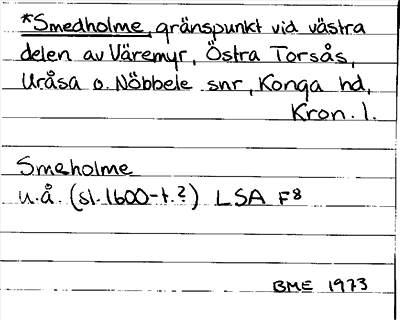 *Smedholme, gränspunkt vid västra
delen av Väremyr, Östra Torsås,
Uråsa o. Nöbbele snr, Konga hd,
Kron. l.
Smeholme
u.å. (sl. 1600-t.?) LSA F8
BME 1973